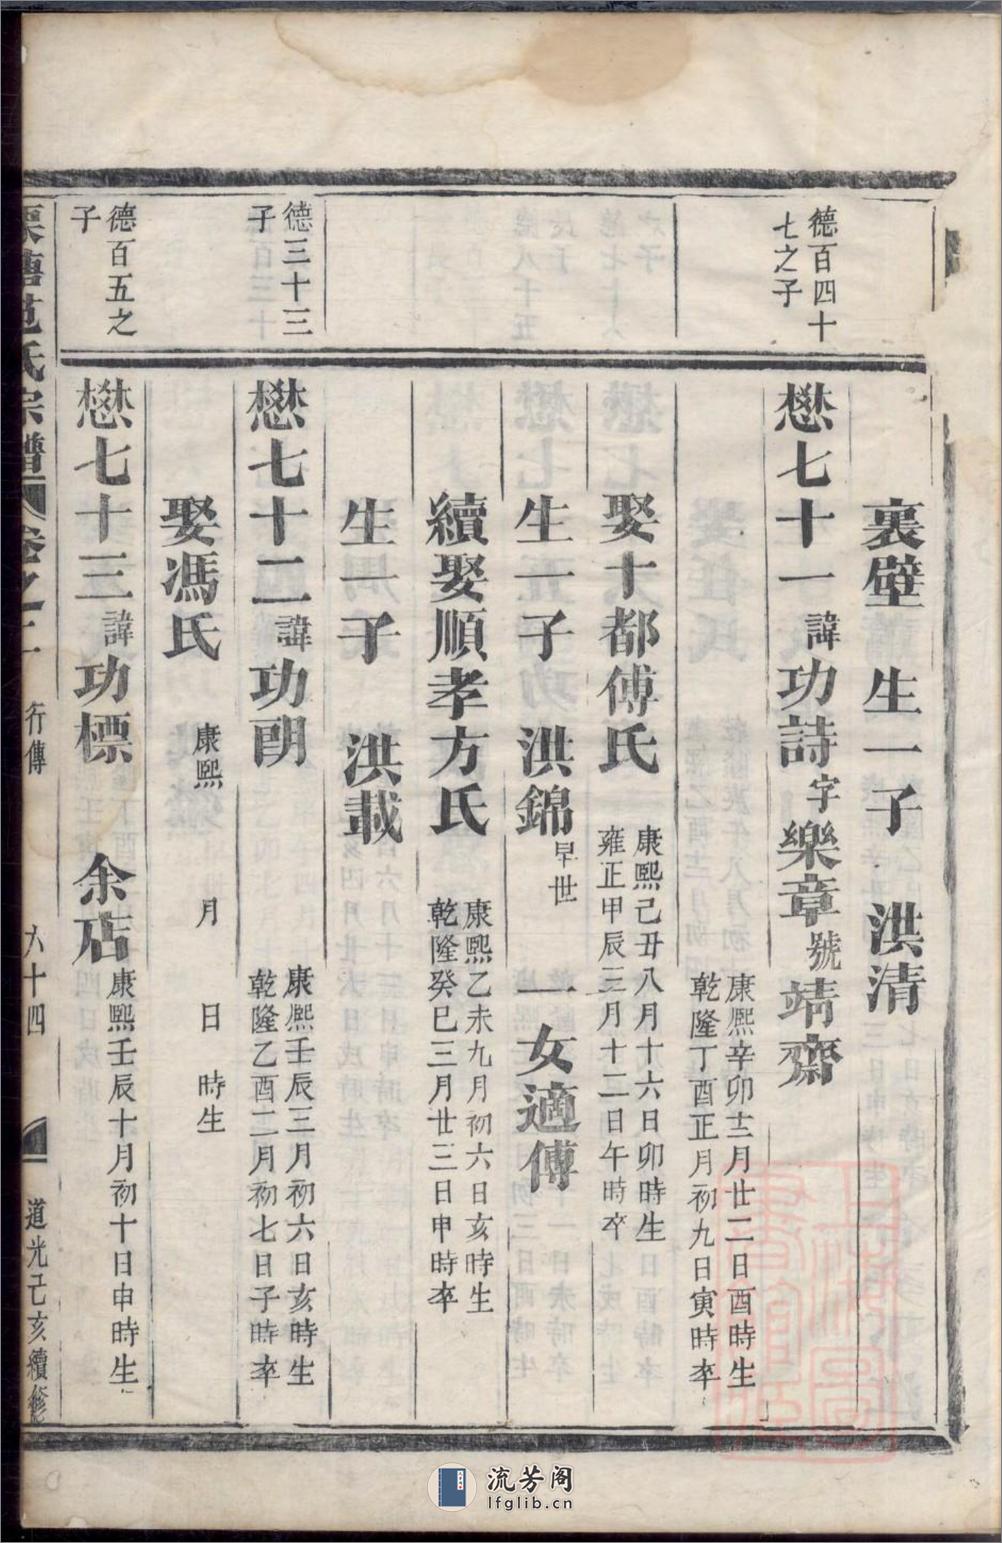 裏壁 生一子 洪清
德百四十
七之子
懋七十一 諱 功詩 字 樂章 號 靖齋
康熙辛卯十二月廿二日酉時生
乾隆丁酉正月初九日寅時卒
娶十都傅氏
康熙己丑八月十六日卯時生
雍正甲辰三月十二日午時卒
生一子 洪錦 早世 一女適傅
續娶順孝方氏
康熙乙未九月初六日亥時生
乾隆癸巳三月廿三日申時卒
生一子 洪載
德三十三
子
懋七十二 諱 功朗
康熙壬辰三月初六日亥時生
乾隆乙酉二月初七日子時卒
娶馮氏
康熙 月 日 時生
德百五之
子
懋七十三 諱 功標 余店
康熙壬辰十月初十日申時生
范氏宗譜 卷之二 行傳 六十四 道光己亥續修
流芳阁
lfglib.cn